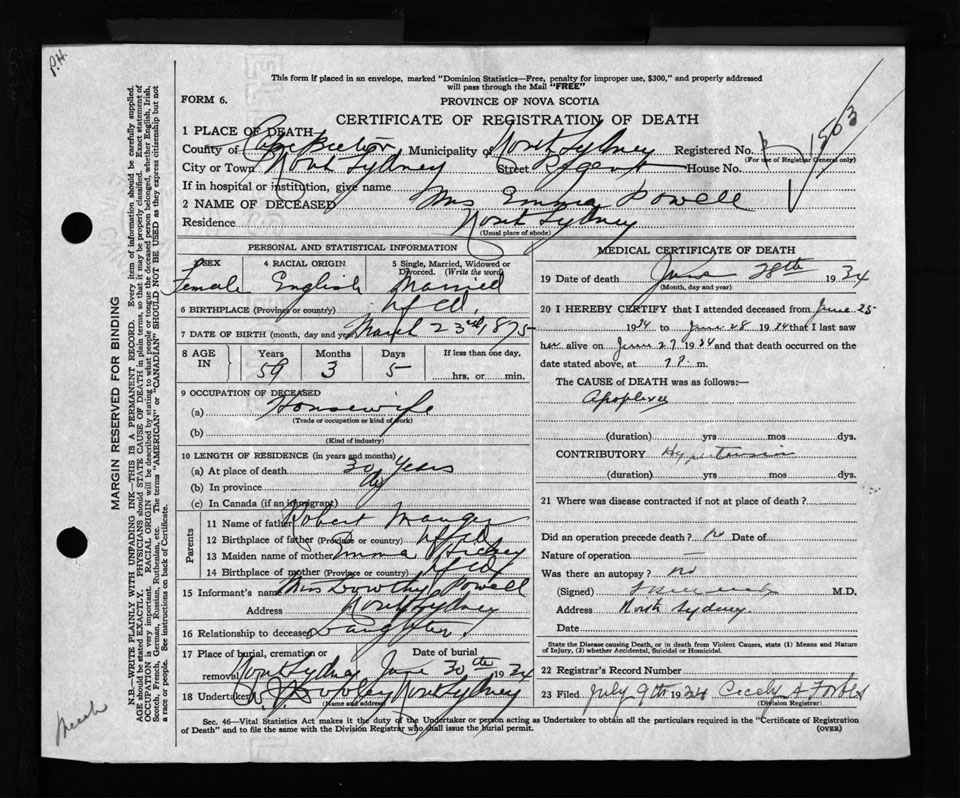 P.H.
This form if placed in an envelope, marked "Dominion Statistics—Free, penalty for improper use, $300," and properly addressed
will pass through the Mail "FREE"
FORM 6.
PROVINCE OF NOVA SCOTIA
CERTIFICATE OF REGISTRATION OF DEATH
1503
1 PLACE OF DEATH
County of Cape Breton Municipality of North Sydney Registered No.
(For use of Registrar General only)
City or Town North Sydney Street Regent House No.
If in hospital or institution, give name
2 NAME OF DECEASED Mrs Emma Powell
Residence North Sydney
(Usual place of abode)
PERSONAL AND STATISTICAL INFORMATION
3 SEX 4 RACIAL ORIGIN 5 Single, Married, Widowed or
Divorced. (Write the word)
Female English Married
6 BIRTHPLACE (Province or country) Nfld.
7 DATE OF BIRTH (month, day and year) March 23rd 1875
8 AGE IN Years Months Days If less than one day,
59 3 5 hrs. or min.
9 OCCUPATION OF DECEASED
(a) Housewife
(Trade or occupation or kind of work)
(b)
(Kind of industry)
10 LENGTH OF RESIDENCE (in years and months)
(a) At place of death 30 years
(b) In province
(c) In Canada (if an immigrant)
Parents
11 Name of father Robert Mauger
12 Birthplace of father (Province or country) Nfld
13 Maiden name of mother Emma Hickey
14 Birthplace of mother (Province or country) Nfld
15 Informant's name Miss Dorothy Powell
Address North Sydney
16 Relationship to deceased Daughter.
17 Place of burial, cremation or Date of burial
removal North Sydney June 30th 1934
18 Undertaker Dowley North Sydney
(Name and address)
MEDICAL CERTIFICATE OF DEATH
19 Date of death June 28th 1934
(Month, day and year)
20 I HEREBY CERTIFY that I attended deceased from June 25
1934 to June 28 1934 that I last saw
her alive on June 27 1934 and that death occurred on
date stated above, at m.
The CAUSE of DEATH was as follows:—
Apoplexy
(duration) yrs mos dys.
CONTRIBUTORY Hypertension
(duration) yrs mos dys.
21 Where was disease contracted if not at place of death?
Did an operation precede death? no Date of
Nature of operation —
Was there an autopsy? no
(Signed) M.D.
Address North Sydney.
Date
State the Disease causing Death, or in death from Violent Causes, state (1) Means and Nature
of Injury, (2) whether Accidental, Suicidal or Homicidal.
22 Registrar's Record Number
23 Filed July 9th 1934 Cecely A Forbes
(Division Registrar)
Sec. 46—Vital Statistics Act makes it the duty of the Undertaker or person acting as Undertaker to obtain all the particulars required in the "Certificate of Registration
of Death" and to file the same with the Division Registrar who shall issue the burial permit. (OVER)
MARGIN RESERVED FOR BINDING
N.B.—WRITE PLAINLY WITH UNFADING INK—THIS IS A PERMANENT RECORD. Every item of information should be carefully supplied.
AGE should be stated EXACTLY. PHYSICIANS should STATE CAUSE OF DEATH in plain terms, so that it may be properly classified. Exact statement of
OCCUPATION is very important. RACIAL ORIGIN will be described by stating to what people or tongue the deceased person belonged, whether English, Irish,
Scotch, French, German, Russian, Ruthenian, etc. The terms "AMERICAN" or "CANADIAN" SHOULD NOT BE USED as they express citizenship but not
a race or people. See instructions on back of Certificate.